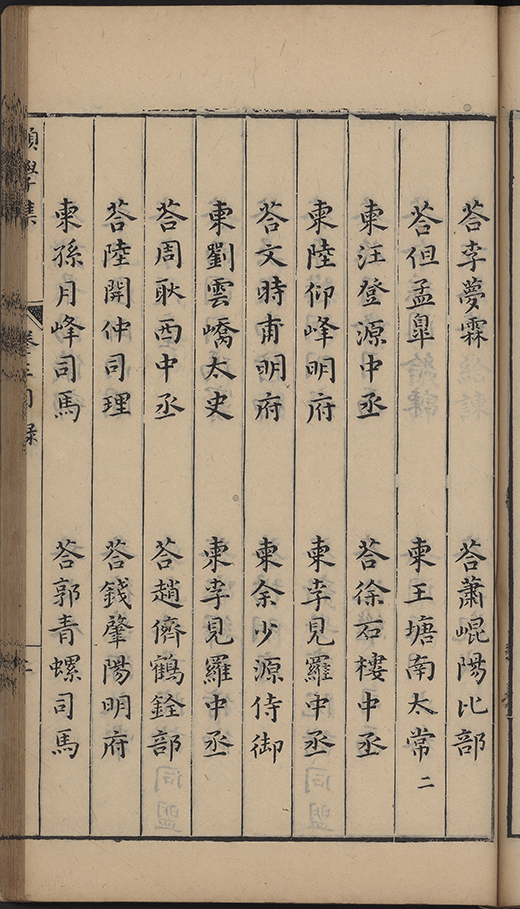 荅李夢霖
荅蕭崐陽比部
荅但孟臯
柬王塘南太常二
柬汪登源中丞
荅徐石樓中丞
柬陸仰峰明府
柬李見羅中丞
荅文時甫明府
柬余少源侍御
柬劉雲嶠太史
柬李見羅中丞
荅周耿西中丞
荅趙儕鶴銓部
荅陸開仲司理
荅錢肇陽明府
柬孫月峰司馬
荅郭青螺司馬
學集
目錄